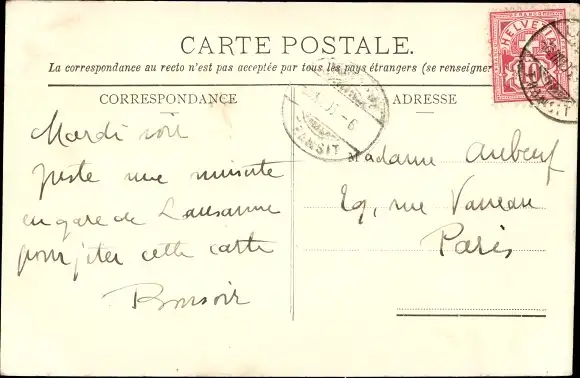 CARTE POSTALE.
La correspondance au recto n'est pas acceptée par tous les pays étrangers (se renseigner
HELVETIA
FRANCO
10
TRANSIT
CORRESPONDANCE
ADRESSE
TRANSIT
Mardi soir
juste une minute
en gare de Lausanne
pour jeter cette carte
Bonsoir
Madame Aubeuf
29, rue Vaneau
Paris